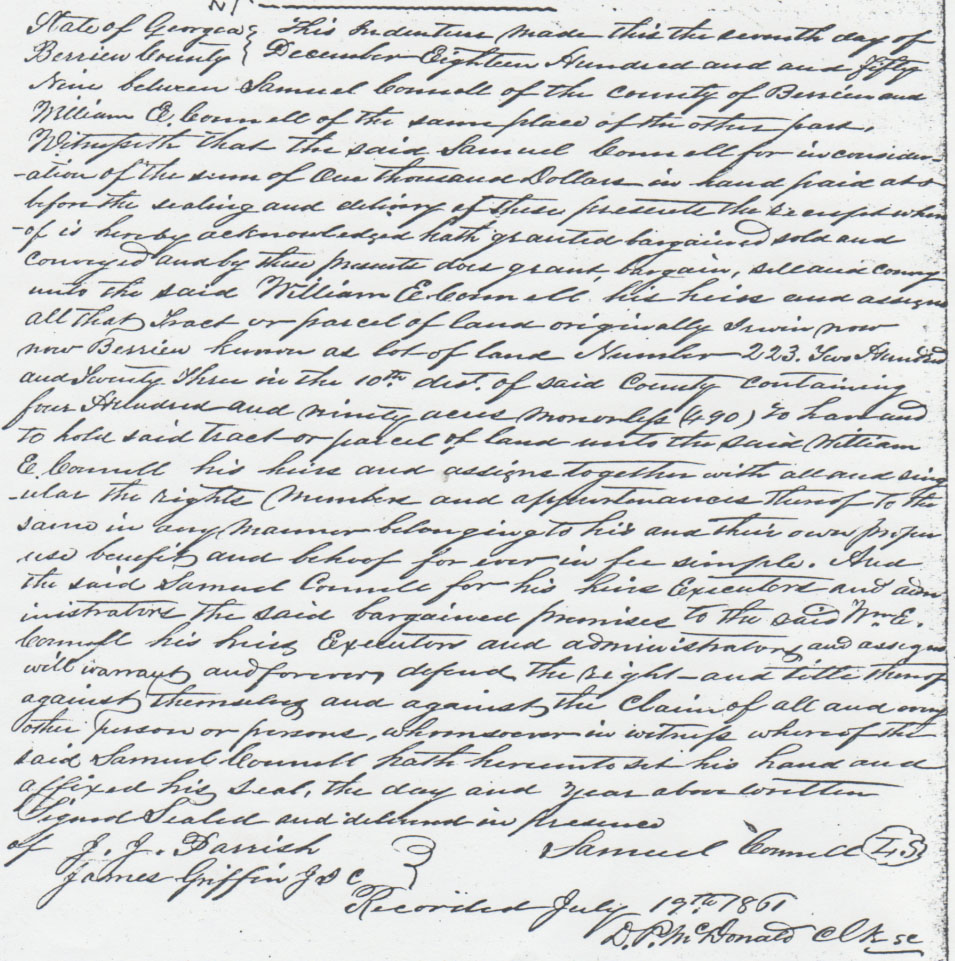 State of Georgia } This Indenture made this the seventh day of
Berrien County } December Eighteen Hundred and and fifty
Nine between Samuel Connell of the county of Berrien and
William E. Connell of the same place of the other part.
Witnesseth that the said Samuel Connell for in consider-
-ation of the sum of One thousand Dollars in hand paid at &
before the sealing and delivery of these presents the receipt where
-of is hereby acknowledged hath granted bargained sold and
conveyed and by these presents does grant, bargain, sell and convey
unto the said William E Connell his heirs and assigns
all that Tract or parcel of land originally Irwin now
now Berrien known as lot of land Number 223. Two Hundred
and Twenty Three in the 10th dist. of said County containing
four Hundred and ninety acres more or less (490) To have and
to hold said tract or parcel of land unto the said William
E. Connell his heirs and assigns together with all and sing
-ular the rights members and appurtenances thereof to the
same in any manner belonging to his and their own proper
use benefit and behoof for ever in fee simple. And
the said Samuel Connell for his heirs Executors and adm
inistrators the said bargained premises to the said Wm. E.
Connell his heirs Executors and administrators and assigns
will warrant and forever defend the right and title thereof
against themselves and against the Claim of all and every
other person or persons, whomsoever in witness whereof the
said Samuel Connell hath hereunto set his hand and
affixed his seal, the day and year above written
Signed Sealed and delivered in presence
of J. J. Parrish } Samuel Connell (L.S)
James Griffin J I C
Recorded July 19th 1861
D. P. McDonald Clk sc